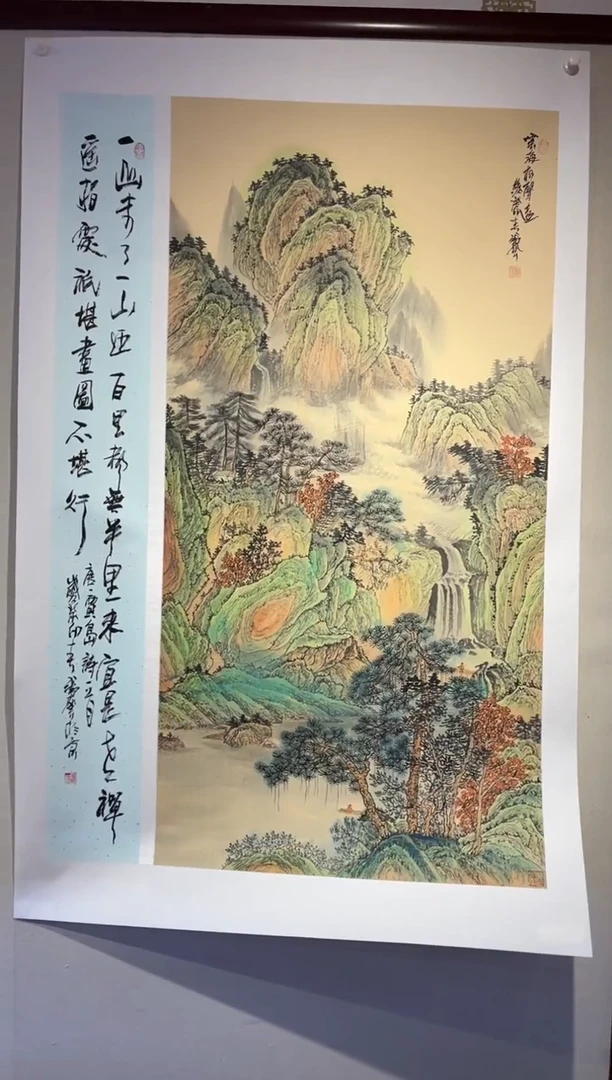 雲海松聲遠
一山未了一山迎百里都無半里平宜是老禪
遥指處祇堪畫圖不堪行
唐賈島詩一首
歲癸卯